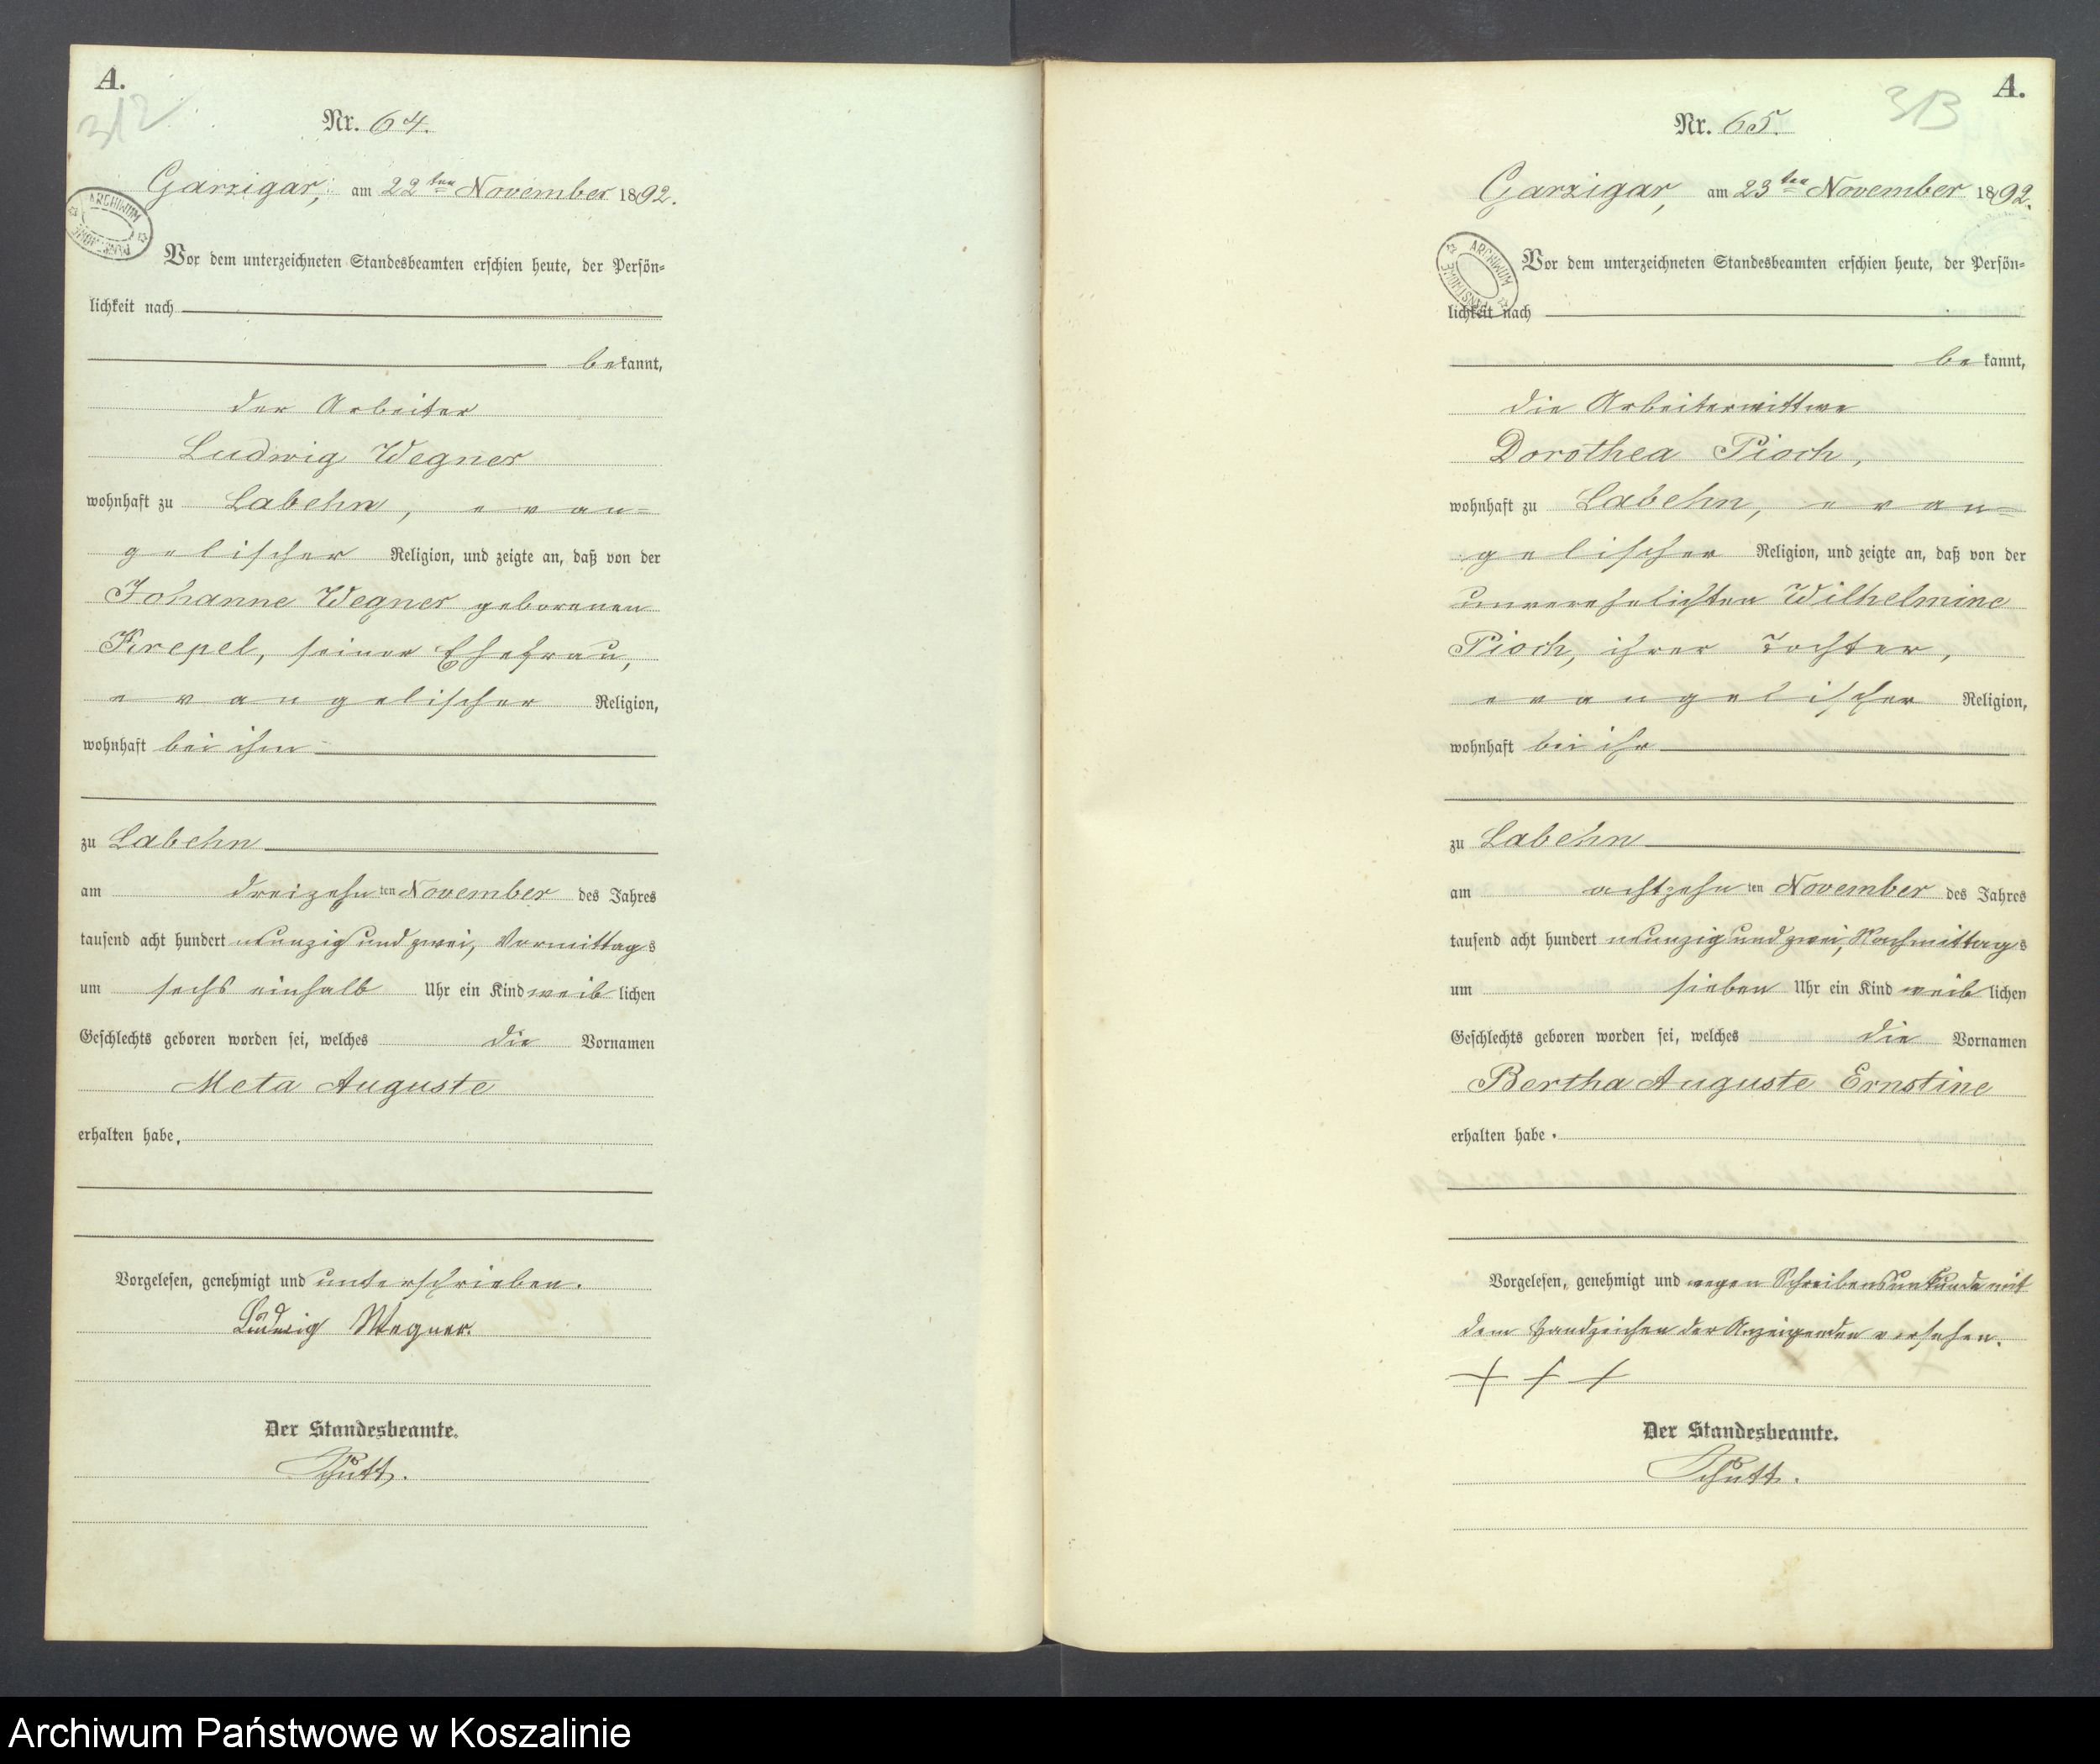 A.
312
Nr. 64.
Garzigar, am 22ten November 1892.
ARCHIWUM PAŃSTWOWE
Vor dem unterzeichneten Standesbeamten erschien heute, der Persön-
lichkeit nach
bekannt,
der Arbeiter
Ludwig Wegner
wohnhaft zu Labehn, evan-
gelischer Religion, und zeigte an, daß von der
Johanne Wegner geborenen
Krepel, seiner Ehefrau,
evangelischer Religion,
wohnhaft bei ihm
zu Labehn
am dreizehnten November des Jahres
tausend acht hundert neunzig und zwei, Vormittags
um sechs einhalb Uhr ein Kind weiblichen
Geschlechts geboren worden sei, welches die Vornamen
Meta Auguste
erhalten habe.
Vorgelesen, genehmigt und unterschrieben.
Ludwig Wegner.
Der Standesbeamte.
Schutt.
A.
313
Nr. 65.
Garzigar, am 23ten November 1892.
ARCHIWUM PAŃSTWOWE
Vor dem unterzeichneten Standesbeamten erschien heute, der Persön-
lichkeit nach
bekannt,
die Arbeiterwittwe
Dorothea Pioch,
wohnhaft zu Labehn, evan-
gelischer Religion, und zeigte an, daß von der
unverehelichten Wilhelmine
Pioch, ihrer Tochter,
evangelischer Religion,
wohnhaft bei ihr
zu Labehn
am achtzehnten November des Jahres
tausend acht hundert neunzig und zwei, Nachmittags
um sieben Uhr ein Kind weiblichen
Geschlechts geboren worden sei, welches die Vornamen
Bertha Auguste Ernstine
erhalten habe.
Vorgelesen, genehmigt und wegen Schreibensunkunde mit
dem Handzeichen der Anzeigenden versehen.
+ + +
Der Standesbeamte.
Schutt.
Archiwum Państwowe w Koszalinie